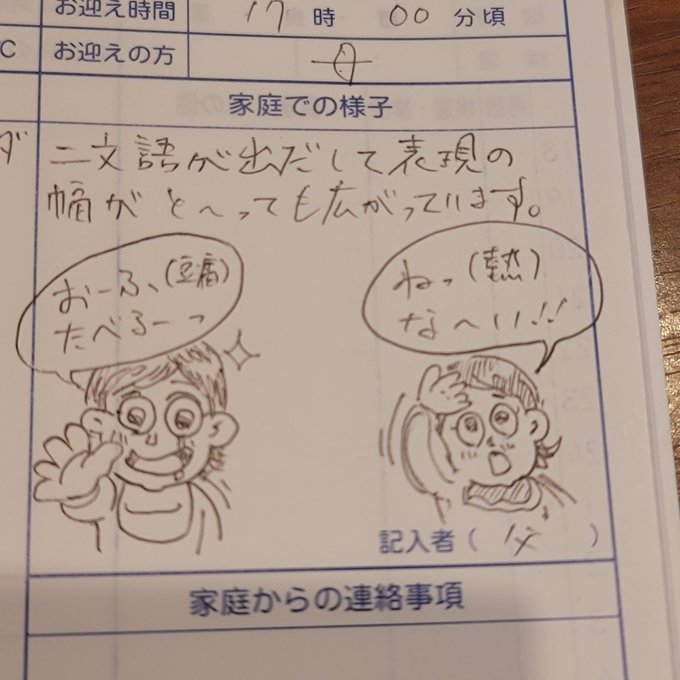 お迎え時間 17時00分頃
℃ お迎えの方 母
家庭での様子
ダ
二文語が出だして表現の
幅がと〜っても広がっています。
おーふ、(豆腐)
たべるーっ
ねっ(熱)
な〜い!!
記入者(父)
家庭からの連絡事項